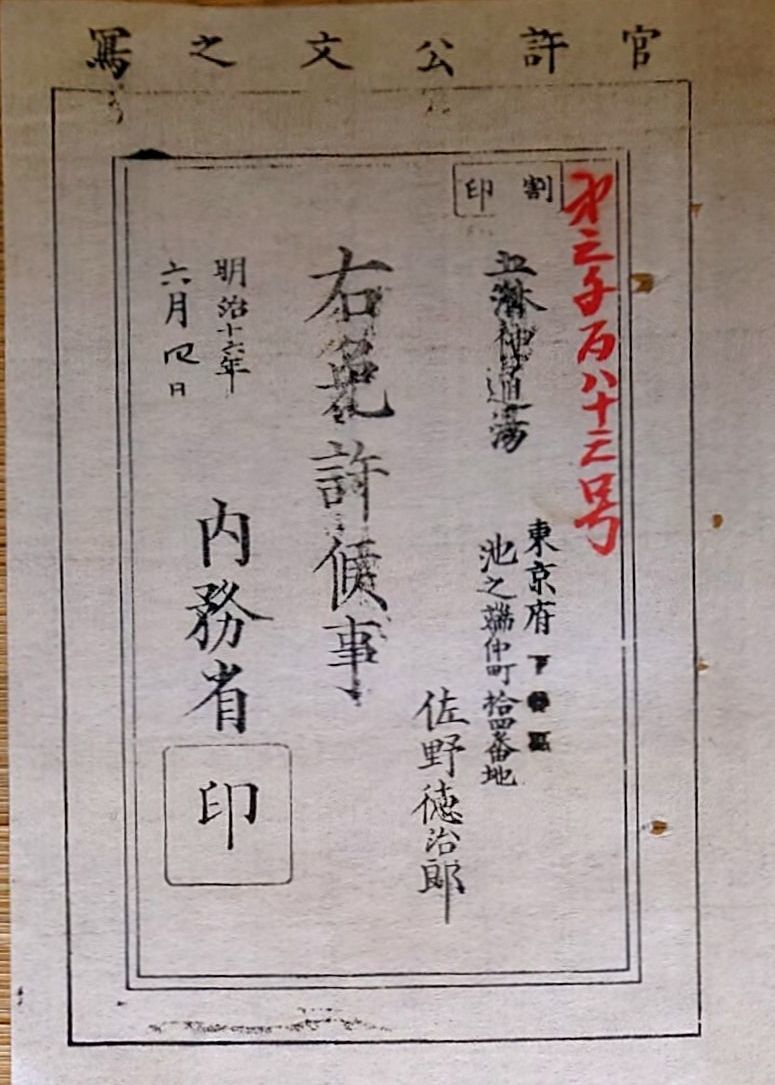 官許公文之寫
第三千百八十三号
割印
五淋神通湯
東京府下谷區
池之端仲町拾四番地
佐野徳治郎
右免許候事
明治十六年
六月四日
内務省
印